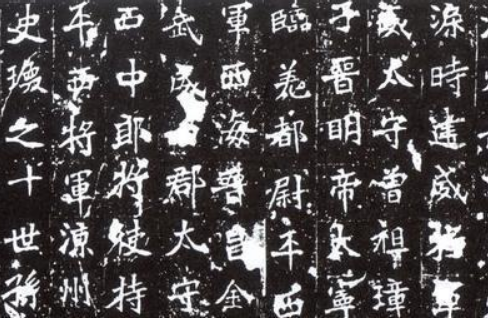 渠時建威將軍
威太守曾祖璋
子晉明帝太寧
臨羌都尉平西
軍西海晉昌金
武威郡太守
西中郎將使持
平西將軍涼州
史瑍之十世孫